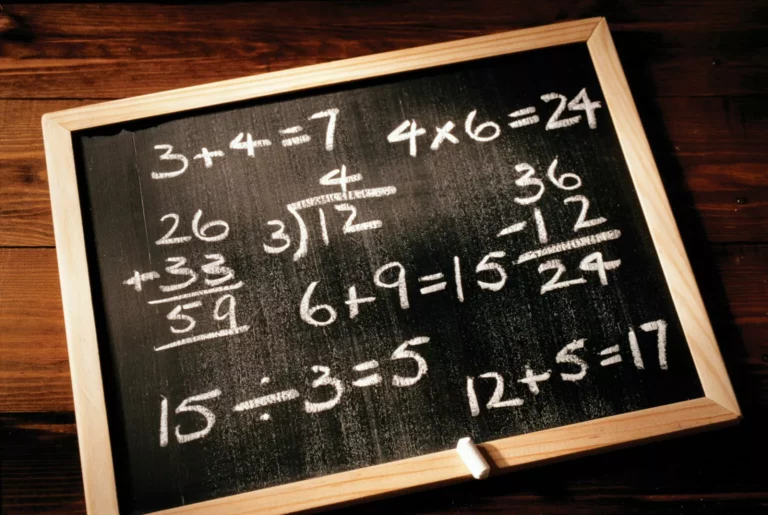 3+4=7
4×6=24
4
3)12
26
+33
59
36
-12
24
6+9=15
15÷3=5
12+5=17